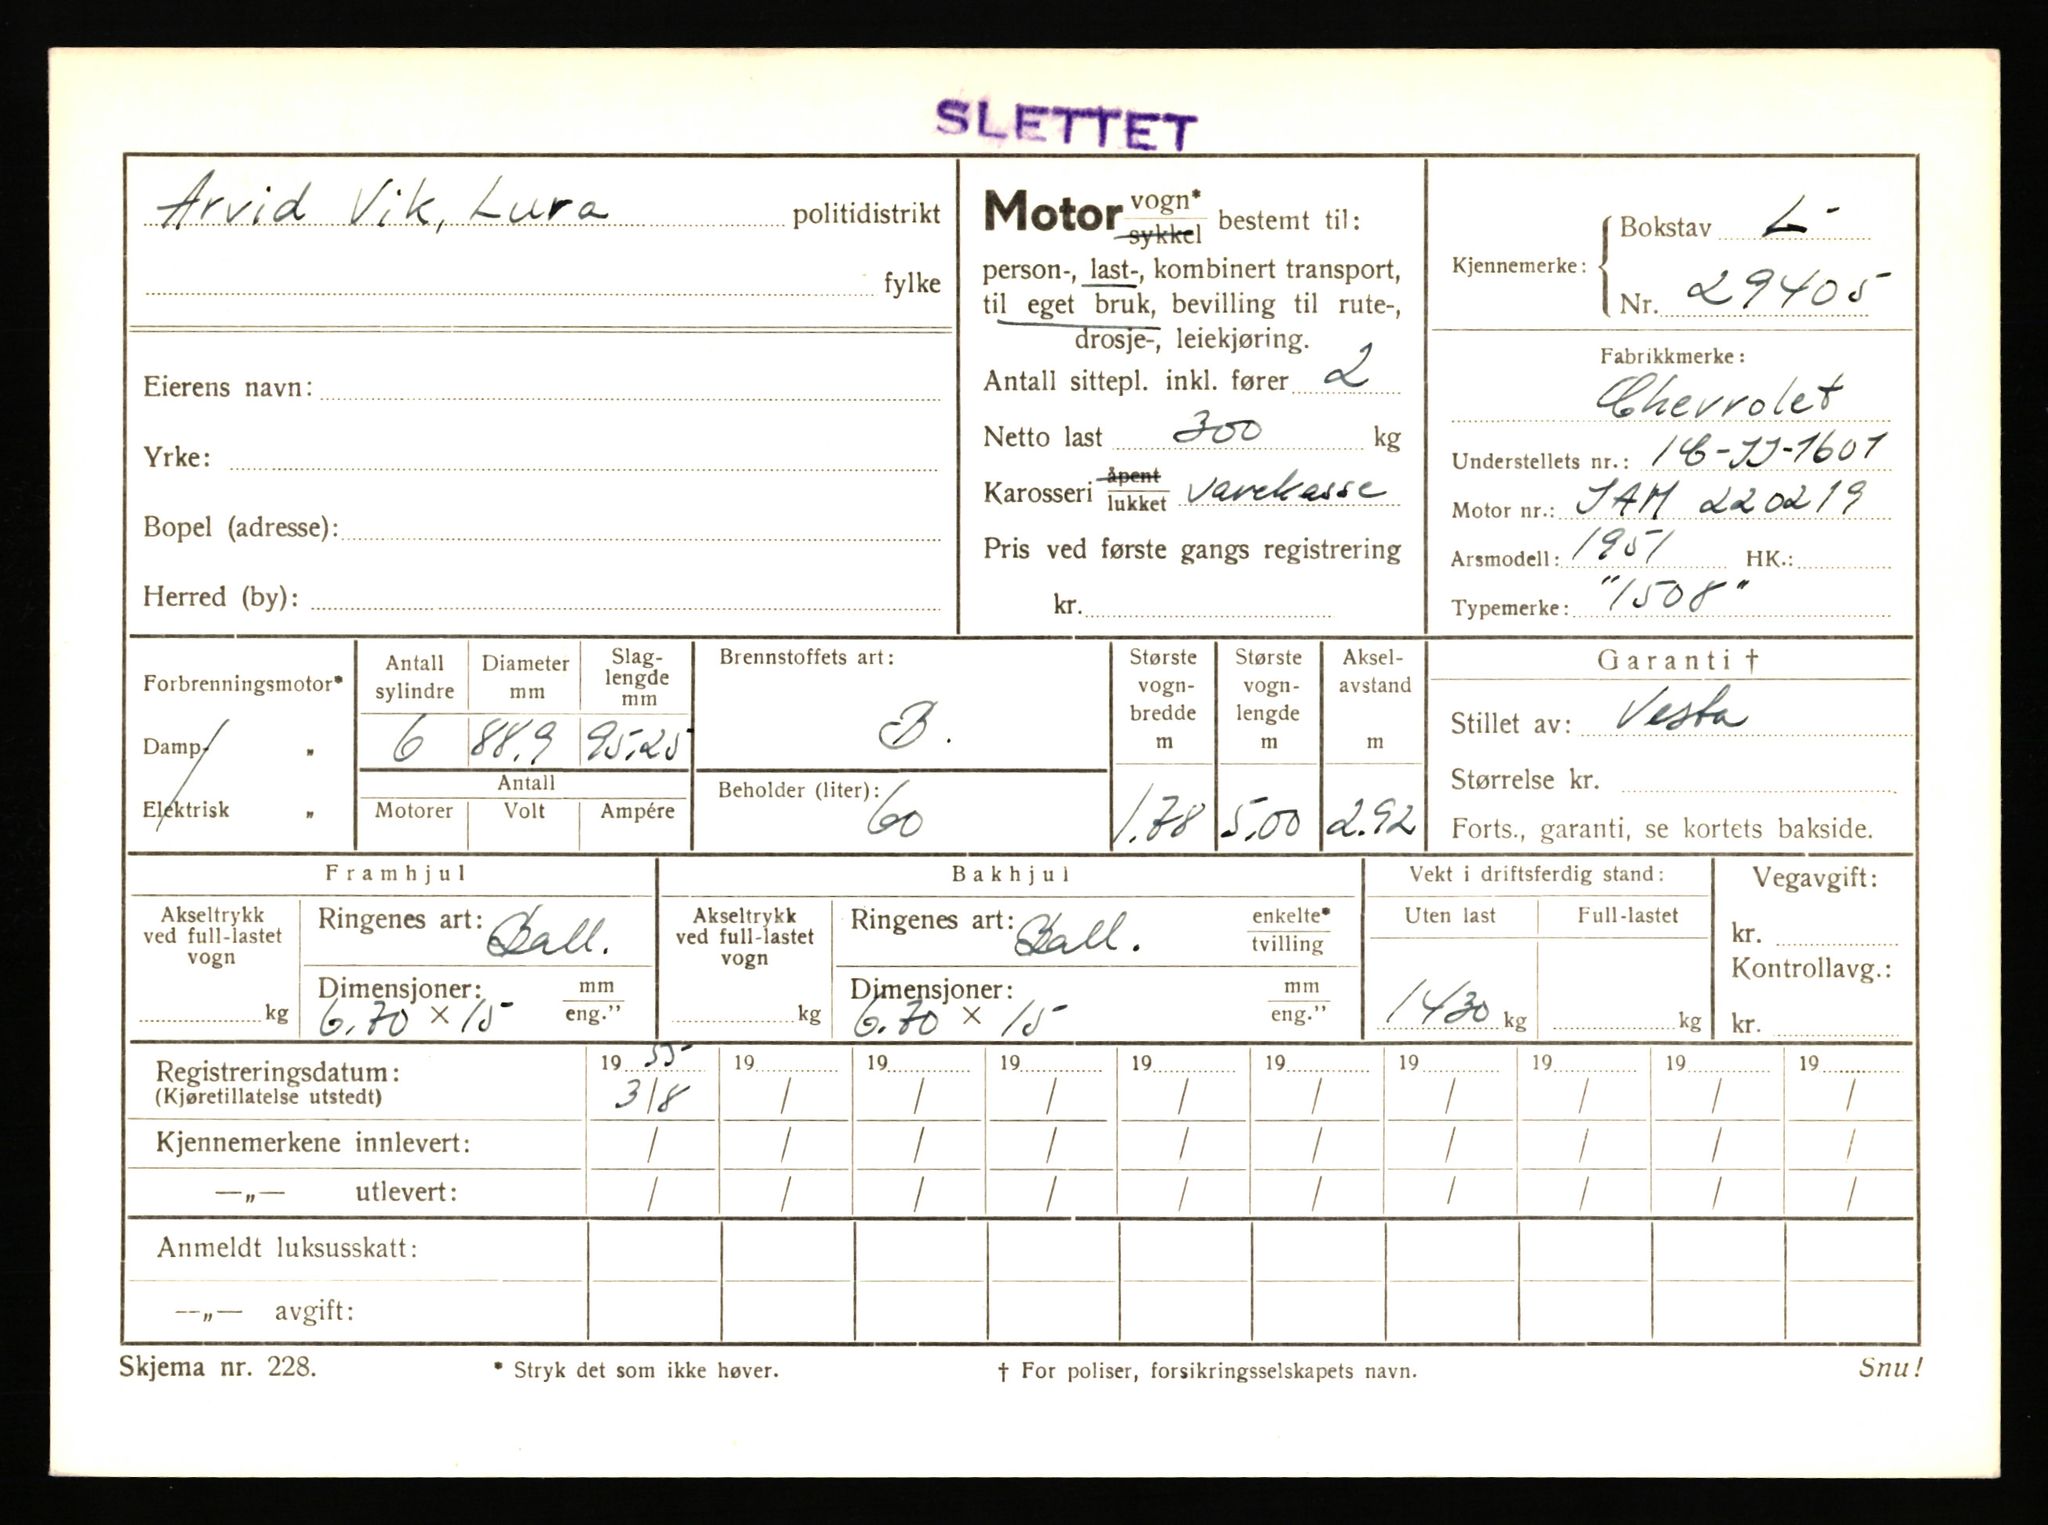 SLETTET
Arvid Vik, Lura politidistrikt
fylke
Eierens navn:
Yrke:
Bopel (adresse):
Herred (by):
Motor vogn* sykkel bestemt til:
person-, last-, kombinert transport,
til eget bruk, bevilling til rute-,
drosje-, leiekjøring.
Antall sittepl. inkl. fører 2
Netto last 300 kg
Karosseri åpent lukket varekasse
Pris ved første gangs registrering
kr.
Kjennemerke: Bokstav L-
Nr. 29405
Fabrikkmerke:
Chevrolet
Understellets nr.: 1C-JJ-1601
Motor nr.: JAM 220219
Arsmodell: 1951 HK.:
Typemerke: "1508"
Forbrenningsmotor*
Damp- „
Elektrisk „
Antall sylindre
6
Diameter mm
88,9
Slag-
lengde
mm
95,25
Antall
Motorer Volt Ampére
Brennstoffets art:
B.
Beholder (liter):
60
Største
vogn-
bredde
m
1.78
Største
vogn-
lengde
m
5,00
Aksel-
avstand
m
2.92
Garanti †
Stillet av: Vesta
Størrelse kr.
Forts., garanti, se kortets bakside.
Framhjul
Akseltrykk
ved full-lastet
vogn
kg
Ringenes art: Ball.
Dimensjoner: mm
6.70 × 15 eng."
Bakhjul
Akseltrykk
ved full-lastet
vogn
kg
Ringenes art: Ball. enkelte*
tvilling
Dimensjoner: mm
6.70 × 15 eng."
Vekt i driftsferdig stand:
Uten last Full-lastet
1430 kg kg
Vegavgift:
kr.
Kontrollavg.:
kr.
Registreringsdatum: 19 55 19 19 19 19 19 19 19 19 19
(Kjøretillatelse utstedt) 3/8 / / / / / / / / /
Kjennemerkene innlevert: / / / / / / / / / /
—„— utlevert: / / / / / / / / / /
Anmeldt luksusskatt:
—„— avgift:
Skjema nr. 228. * Stryk det som ikke høver. † For poliser, forsikringsselskapets navn. Snu!